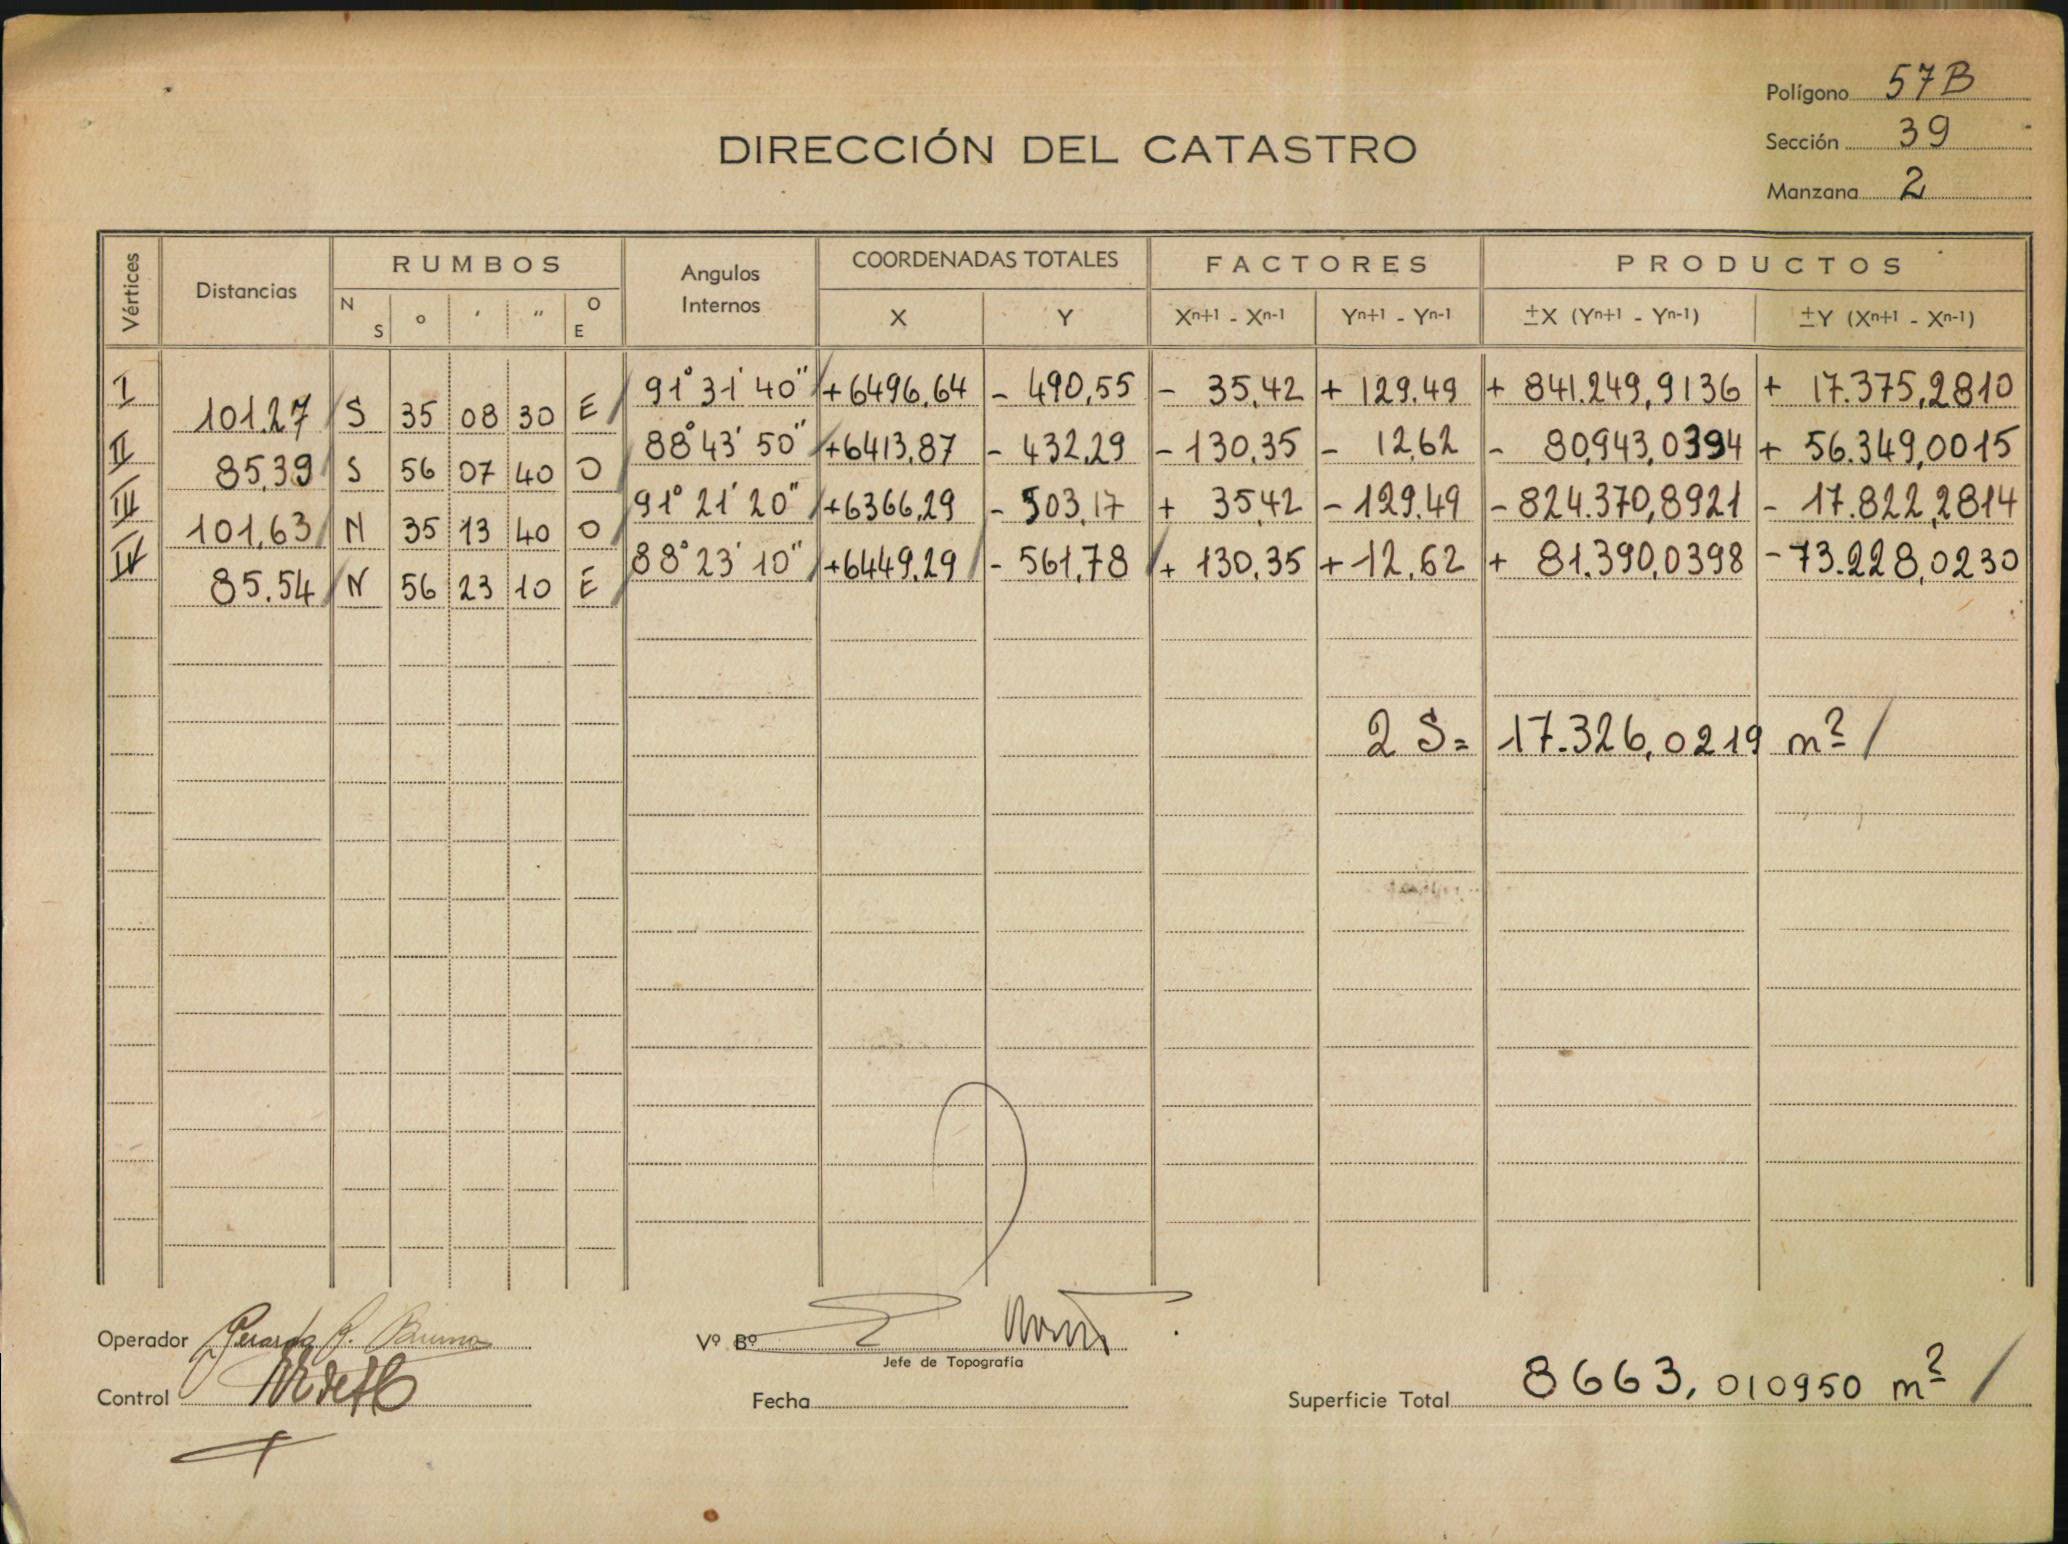 Polígono 57B
DIRECCIÓN DEL CATASTRO
Sección 39
Manzana 2
Vértices Distancias RUMBOS Angulos Internos COORDENADAS TOTALES FACTORES PRODUCTOS
N S ° ' " O E X Y Xⁿ⁺¹ - Xⁿ⁻¹ Yⁿ⁺¹ - Yⁿ⁻¹ ±X (Yⁿ⁺¹ - Yⁿ⁻¹) ±Y (Xⁿ⁺¹ - Xⁿ⁻¹)
I 91° 31' 40" +6496,64 - 490,55 - 35,42 + 129,49 + 841.249,9136 + 17.375,2810
101.27 S 35 08 30 E
II 88° 43' 50" +6413,87 - 432,29 - 130,35 - 12,62 - 80,943,0394 + 56.349,0015
85,39 S 56 07 40 O
III 91° 21' 20" +6366,29 - 503,17 + 35,42 - 129,49 - 824.370,8921 - 17.822,2814
101,63 N 35 13 40 O
IV 88° 23' 10" +6449,29 - 561,78 + 130,35 + 12,62 + 81.390,0398 - 73.228,0230
85.54 N 56 23 10 E
2 S = 17.326,0219 m²
Operador Gerardo R. Bruno
Vº Bº
Jefe de Topografía
Control
Fecha
Superficie Total 8663,010950 m²